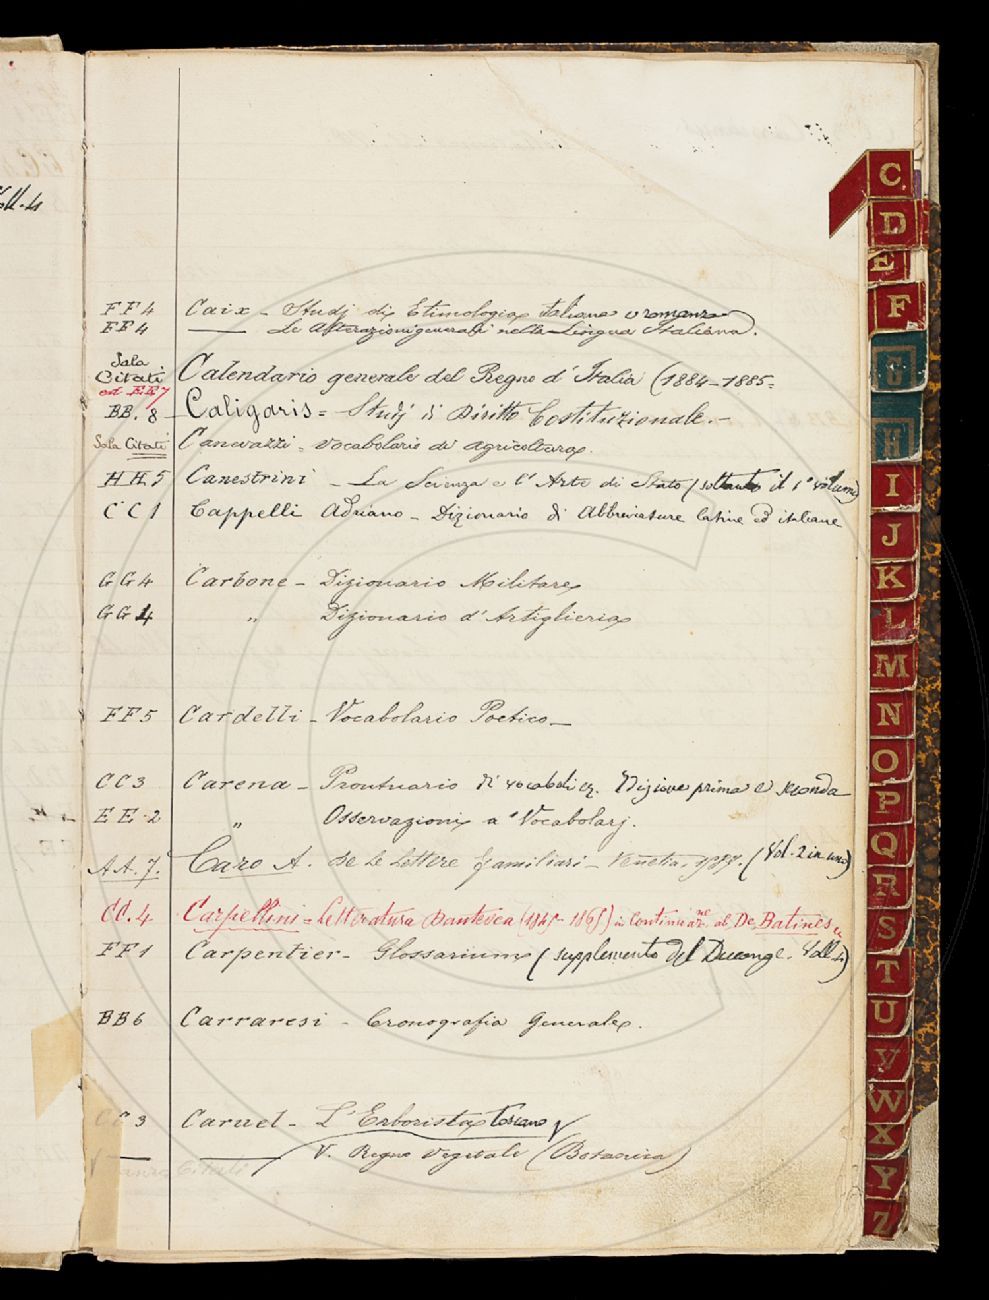 Voll. 4
FF4 Caix - Studj di Etimologia Italiana e romanza
FF4 —— Le Alterazioni generali nella Lingua Italiana.
Sala Citati ed EE7 Calendario generale del Regno d'Italia (1884-1885.
BB. 8 Caligaris = Studj di Diritto Costituzionale. -
Sala Citati Canevazzi = Vocabolario di agricoltura.
HH5 Canestrini - La Scienza e l'Arte di Stato (soltanto il 1° volume)
CC1 Cappelli Adriano - Dizionario di Abbreviature latine ed italiane
GG4 Carbone - Dizionario Militare
GG4 " Dizionario d'Artiglieria
FF5 Cardelli - Vocabolario Poetico -
CC3 Carena - Prontuario di vocaboli Edizione prima e seconda
EE-2 " Osservazioni a' Vocabolarj.
AA.7. Caro A. De le Lettere familiari - Venetia, (Vol. 2 in uno)
CC.4 Carpellini = Letteratura Dantesca (1845-1865) in continuazne al De Batines
FF1 Carpentier - Glossarium (supplemento del Ducange. Voll. 4)
BB6 Carraresi - Cronografia Generale.
CC3 Caruel - L'Erborista toscano
—— V. Regno Vegetale (Botanica)
Citati
C
D
E
F
G
H
I
J
K
L
M
N
O
P
Q
R
S
T
U
V
W
X
Y
Z